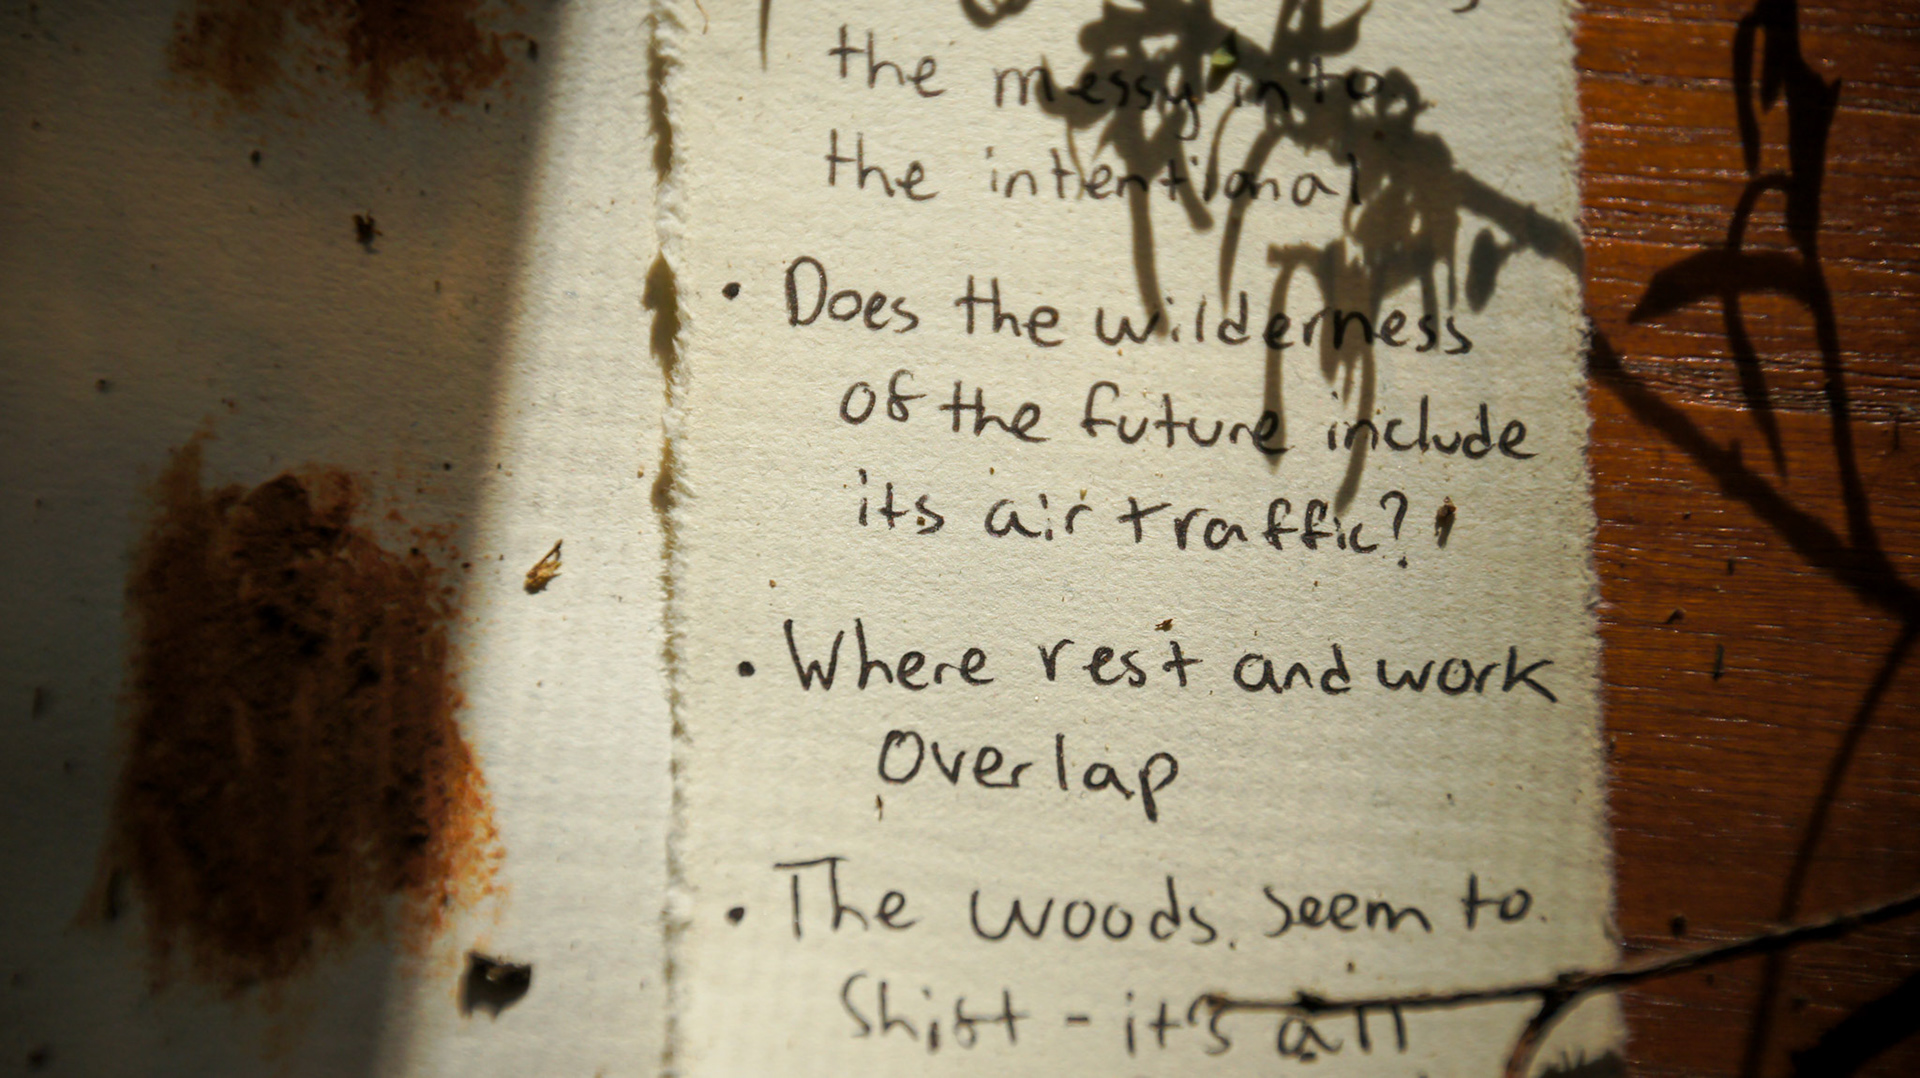 the messy into
the intentional
• Does the wilderness
of the future include
its air traffic?
• Where rest and work
overlap
• The woods seem to
shift - it's all